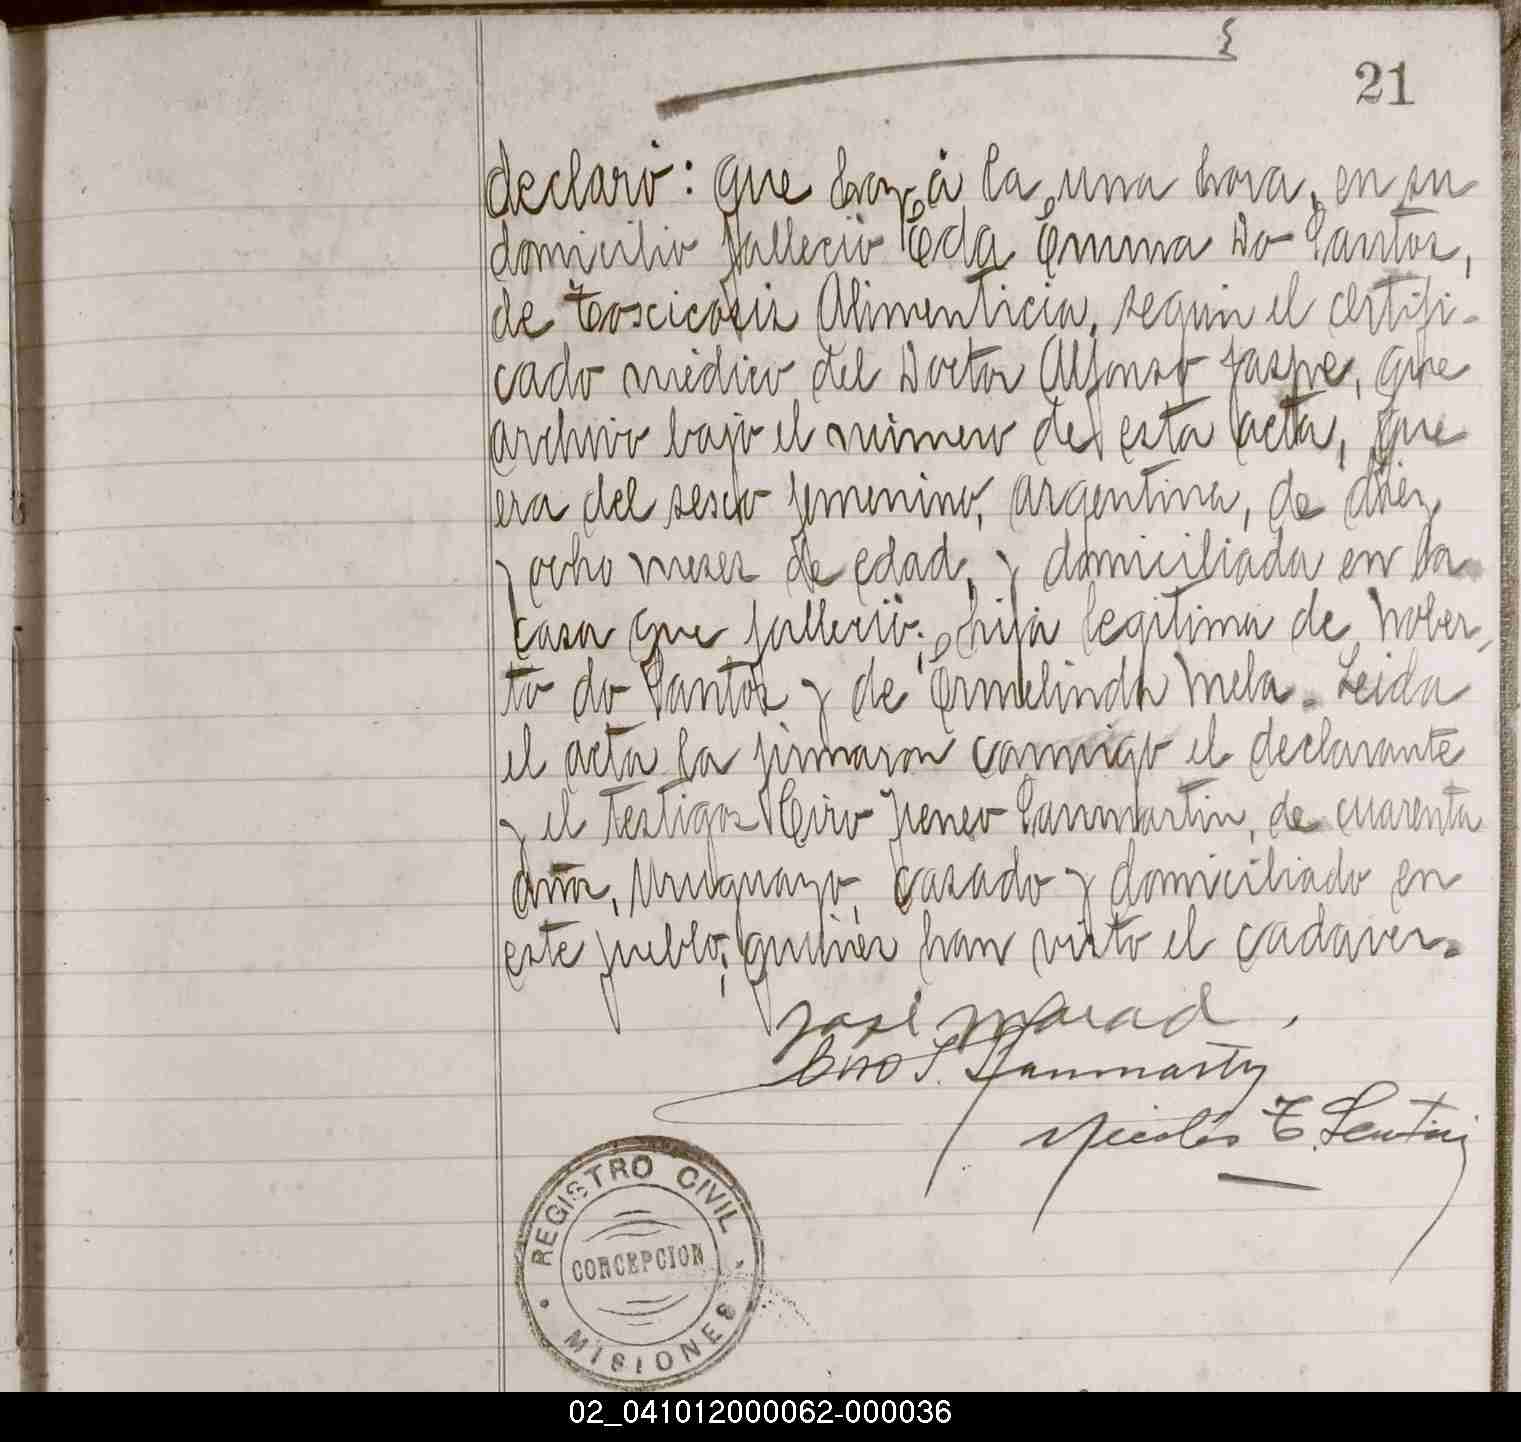 21
declaró: que hoy á la una hora, en su
domicilio falleció Eda Emma Do Santos,
de Toscicosis Alimenticia, según el certifi-
cado médico del Doctor Alfonso Jaspe, que
archivo bajo el número de esta acta, que
era del sescso femenino, argentina, de diez
y ocho meses de edad, y domiciliada en la
casa que falleció; hija legitima de Nober,
to do Santos y de Ermelinda Mela. Leida
el acta la firmaron conmigo el declarante
y el testigos Ciro Ireneo Sanmartin, de cuarenta
años, Uruguayo, casado y domiciliado en
este pueblo; quienes han visto el cadaver.
José Morad.
Ciro I. Sanmartin
Nicolás T.
REGISTRO CIVIL
CONCEPCION
MISIONES
02_041012000062-000036